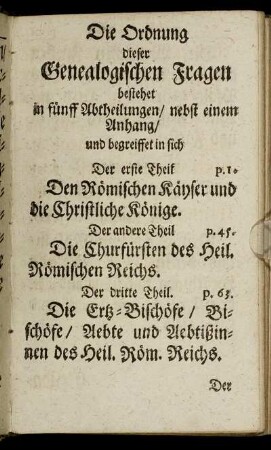 Die Ordnung
dieser
Genealogischen Fragen
bestehet
in fünff Abtheilungen/ nebst einem
Anhang/
und begreiffet in sich
Der erste Theil p.1.
Den Römischen Käyser und
die Christliche Könige.
Der andere Theil p. 45.
Die Churfürsten des Heil.
Römischen Reichs.
Der dritte Theil. p. 63.
Die Ertz-Bischöfe/ Bi-
schöfe/ Aebte und Aebtißin-
nen des Heil. Röm. Reichs.
Der